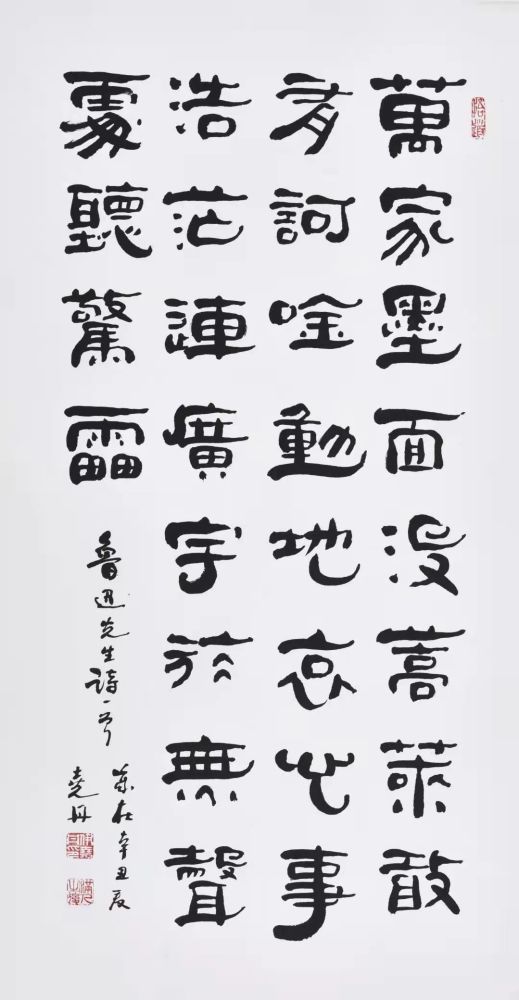 萬家墨面沒蒿萊敢
有訶唫動地哀心事
浩茫連廣宇於無聲
處聽驚靁
魯迅先生詩一首
歲在辛丑夏
堯丹